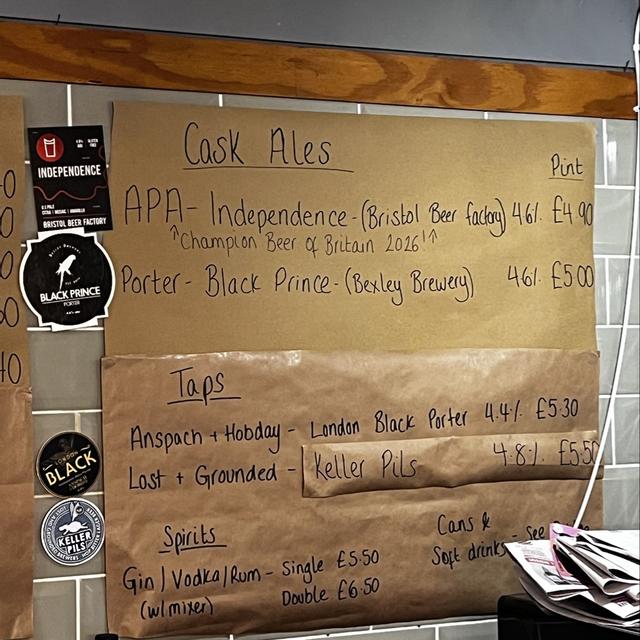 Cask Ales
Pint
APA- Independence-(Bristol Beer factory) 4.6% £4.90
↑Champion Beer of Britain 2026!↑
Porter- Black Prince-(Bexley Brewery) 4.6% £5.00
Taps
Anspach + Hobday - London Black Porter 4.4% £5.30
Lost + Grounded - Keller Pils 4.8% £5.50
Spirits
Gin/Vodka/Rum - Single £5.50
(w/mixer) Double £6.50
Cans &
Soft drinks - see
INDEPENDENCE
BRISTOL BEER FACTORY
BLACK PRINCE
PORTER
LONDON
BLACK
KELLER
PILS